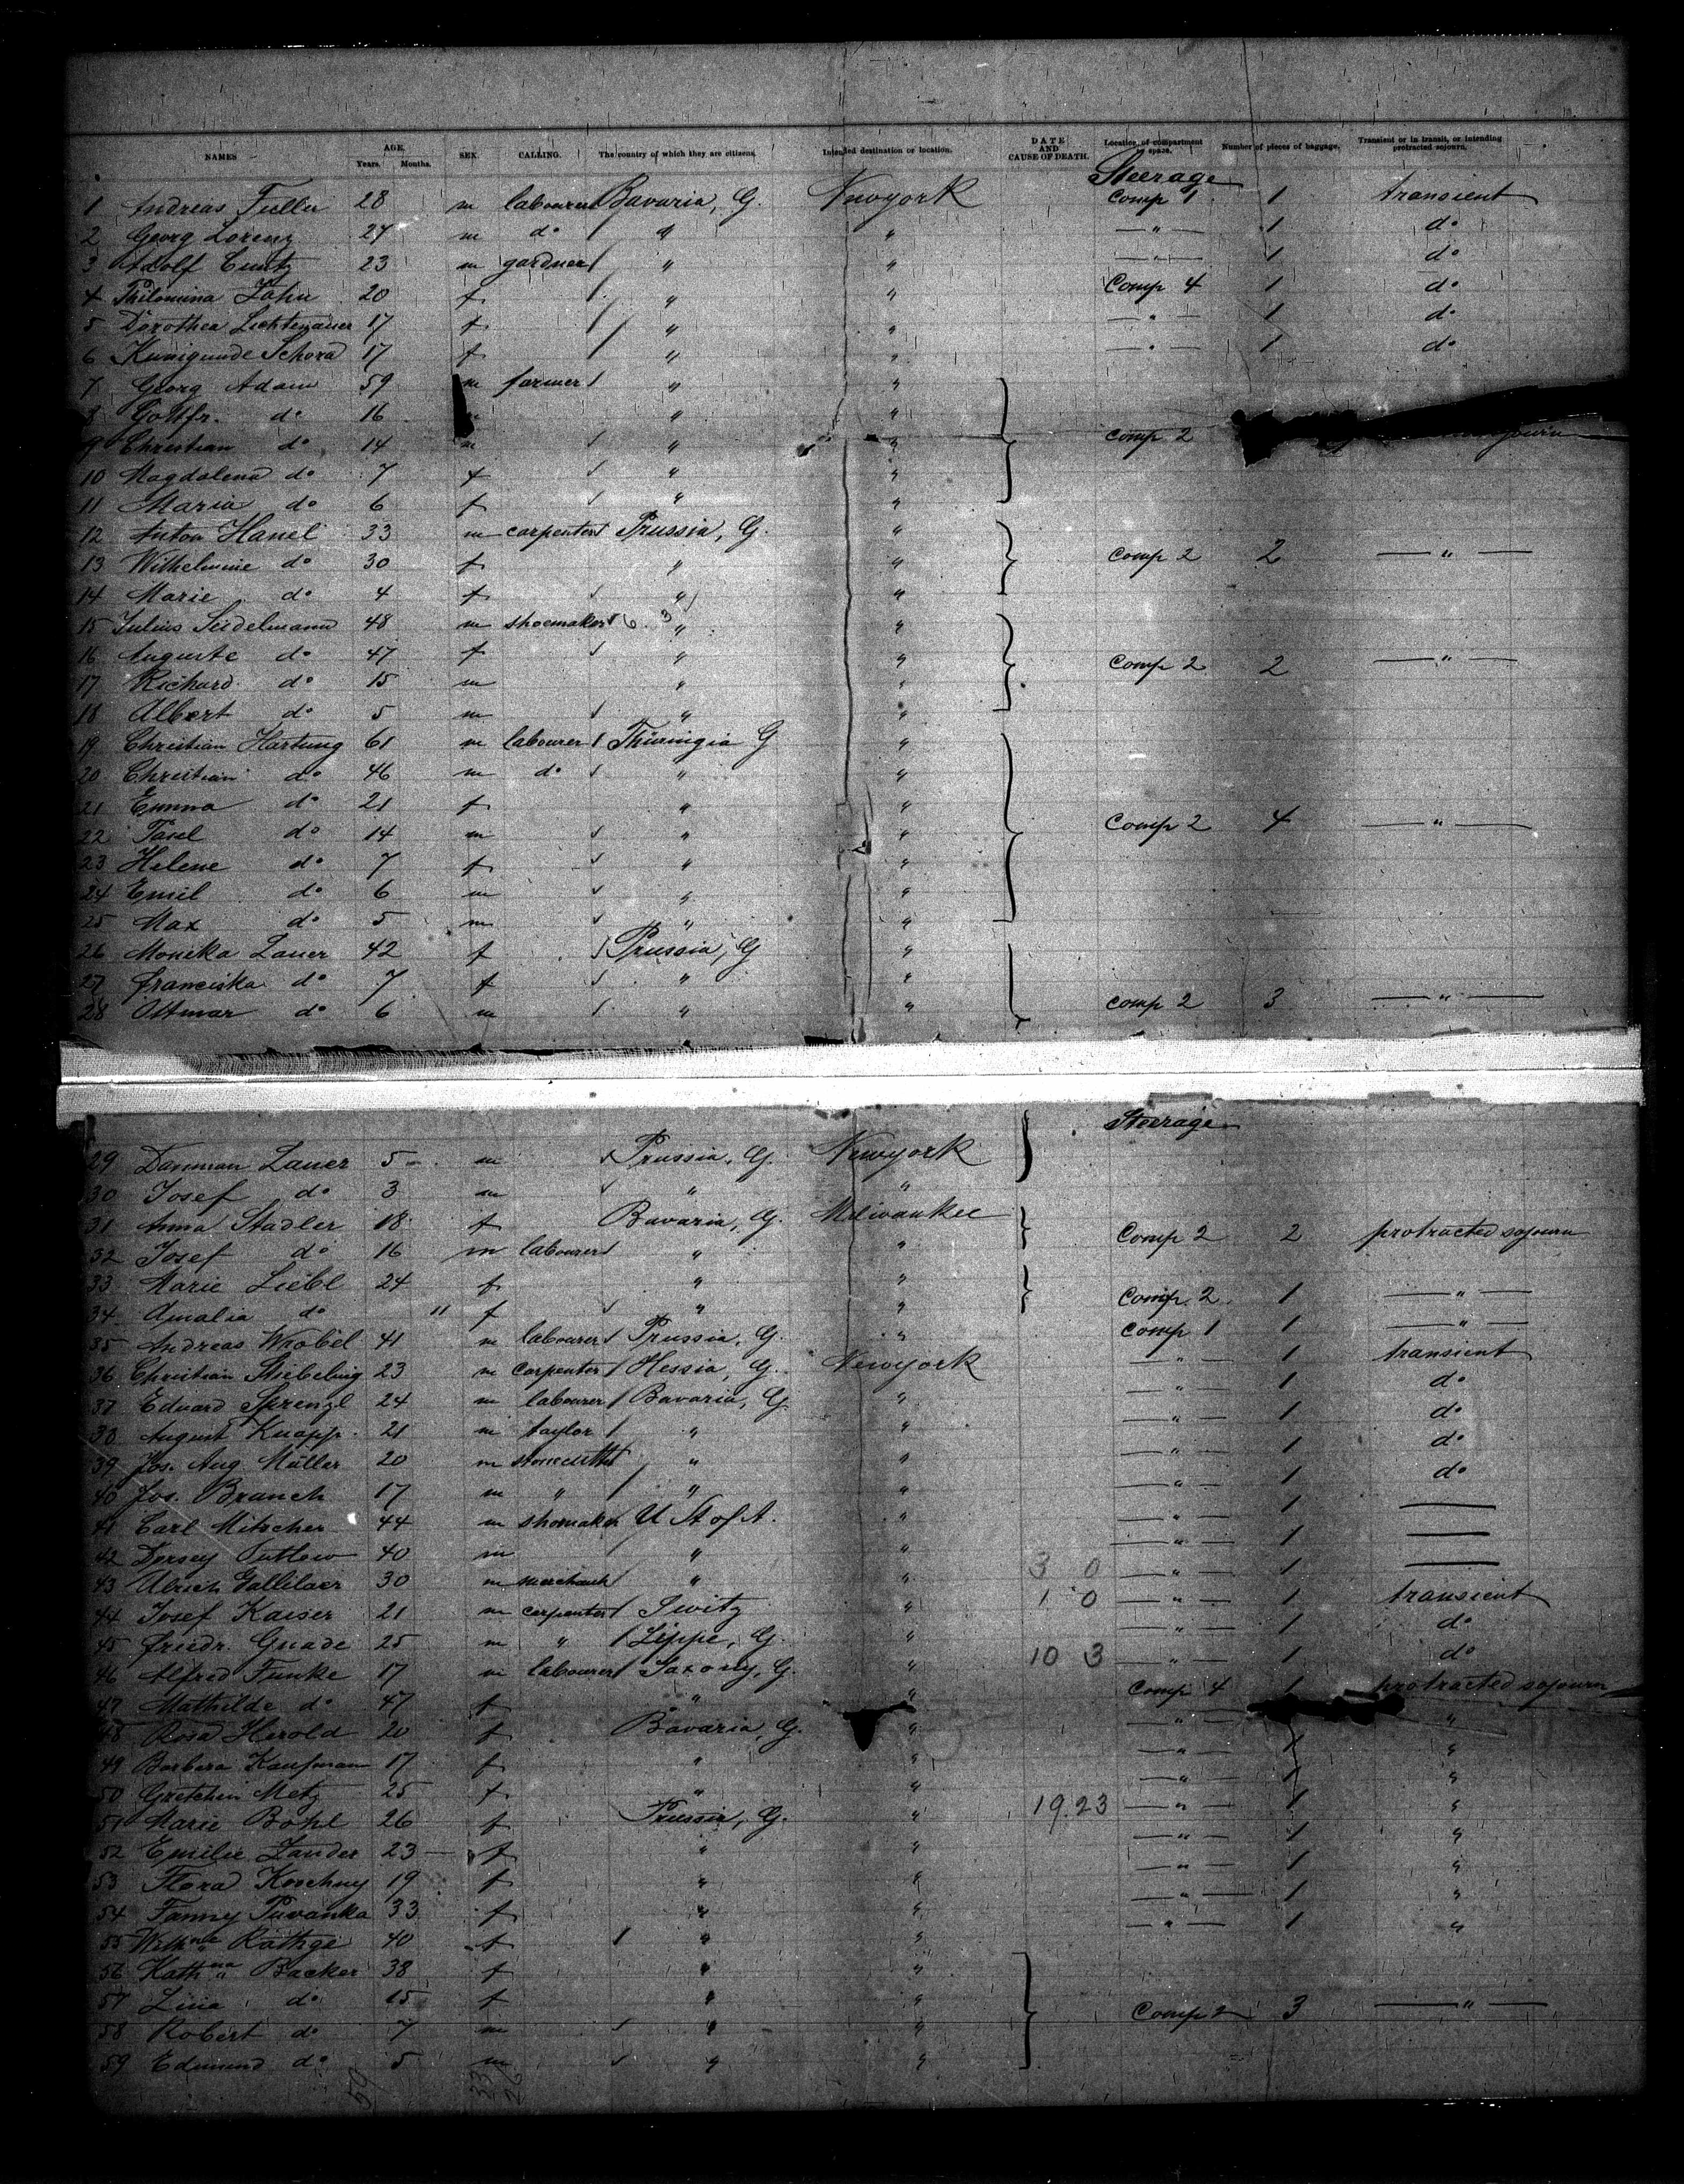 NAMES AGE. Years. Months. SEX. CALLING. The country of which they are citizens. Intended destination or location. DATE AND CAUSE OF DEATH. Location of compartment or space. Number of pieces of baggage. Transient or in transit, or intending protracted sojourn.
Steerage
1 Andreas Fuller 28 m labourer Bavaria, G. Newyork Comp 1 1 transient
2 Georg Lorenz 27 m do " " " 1 do
3 Adolf Cuntz 23 m gardner " " " 1 do
4 Philomina Zahn 20 f " " Comp 4 1 do
5 Dorothea Lichtenauer 17 f " " " 1 do
6 Kunigunde Schora 17 f " " " 1 do
7 Georg Adam 59 m farmer " "
8 Gottfr. do 16 " "
9 Christian do 14 m " " Comp 2
10 Magdalena do 7 f " "
11 Maria do 6 f " "
12 Anton Hanel 33 m carpenter Prussia, G. "
13 Wilhelmine do 30 f " " Comp 2 2 "
14 Marie do 4 f " "
15 Julius Seidelmann 48 m shoemaker 6 3 " "
16 Auguste do 47 f " " Comp 2 2 "
17 Richard do 15 m " "
18 Albert do 5 m " "
19 Christian Hartung 61 m labourer Thuringia G "
20 Christian do 46 m do " "
21 Emma do 21 f " "
22 do 14 m " " Comp 2 4 "
23 Helene do 7 f " "
24 Emil do 6 m " "
25 Max do 5 m " "
26 Monika Lauer 42 f Prussia, G "
27 Franciska do 7 f " "
28 Ottmar do 6 m " " Comp 2 3 "
Steerage
29 Damman Lauer 5 m Prussia, G. Newyork
30 Josef do 3 m " "
31 Anna Stadler 18 f Bavaria, G. Milwaukee
32 Josef do 16 m labourer " " Comp 2 2 protracted sojourn
33 Marie Liebl 24 f " "
34 Amalia do 11 f " " Comp. 2 1 "
35 Andreas Wrobel 41 m labourer Prussia, G. " Comp 1 1 "
36 Christian Stiebeling 23 m carpenter Hessia, G. Newyork " 1 transient
37 Eduard Sprenzl 24 m labourer Bavaria, G. " " 1 do
38 August Knapp 21 m taylor " " " 1 do
39 Jos. Aug. Müller 20 m stonecutter " " " 1 do
40 Jos. Branch 17 m " " " " 1 do
41 Carl Mitscher 44 m shomaker U St of A. " " 1
42 Dorsey 40 m " " " 1
43 Ulrich 30 m merchant " " 3 0 " 1
44 Josef Kaiser 21 m carpenter Switz " 1 0 " 1 transient
45 Friedr. Gnade 25 m " Lippe, G. " " 1 do
46 Alfred Funke 17 m labourer Saxony, G. " 10 3 " 1 do
47 Mathilde do 47 f " " Comp 4 1 protracted sojourn
48 Rosa Herold 20 f Bavaria, G. " " "
49 Barbara Kaufmann 17 f " " " 1 "
50 Gretchen Metz 25 f " " " 1 "
51 Marie Bohl 26 f Prussia, G. " 19.23 " 1 "
52 Emilie Zander 23 f " " " 1 "
53 Flora Koschny 19 f " " " 1 "
54 Fanny Puvanka 33 f " " " 1 "
55 Wilhne Rathge 40 f " " " 1 "
56 Kathna Backer 38 f " "
57 Lina do 15 f " "
58 Robert do 7 m " " Comp 2 3 "
59 Edmund do 5 m " "
59 33 26